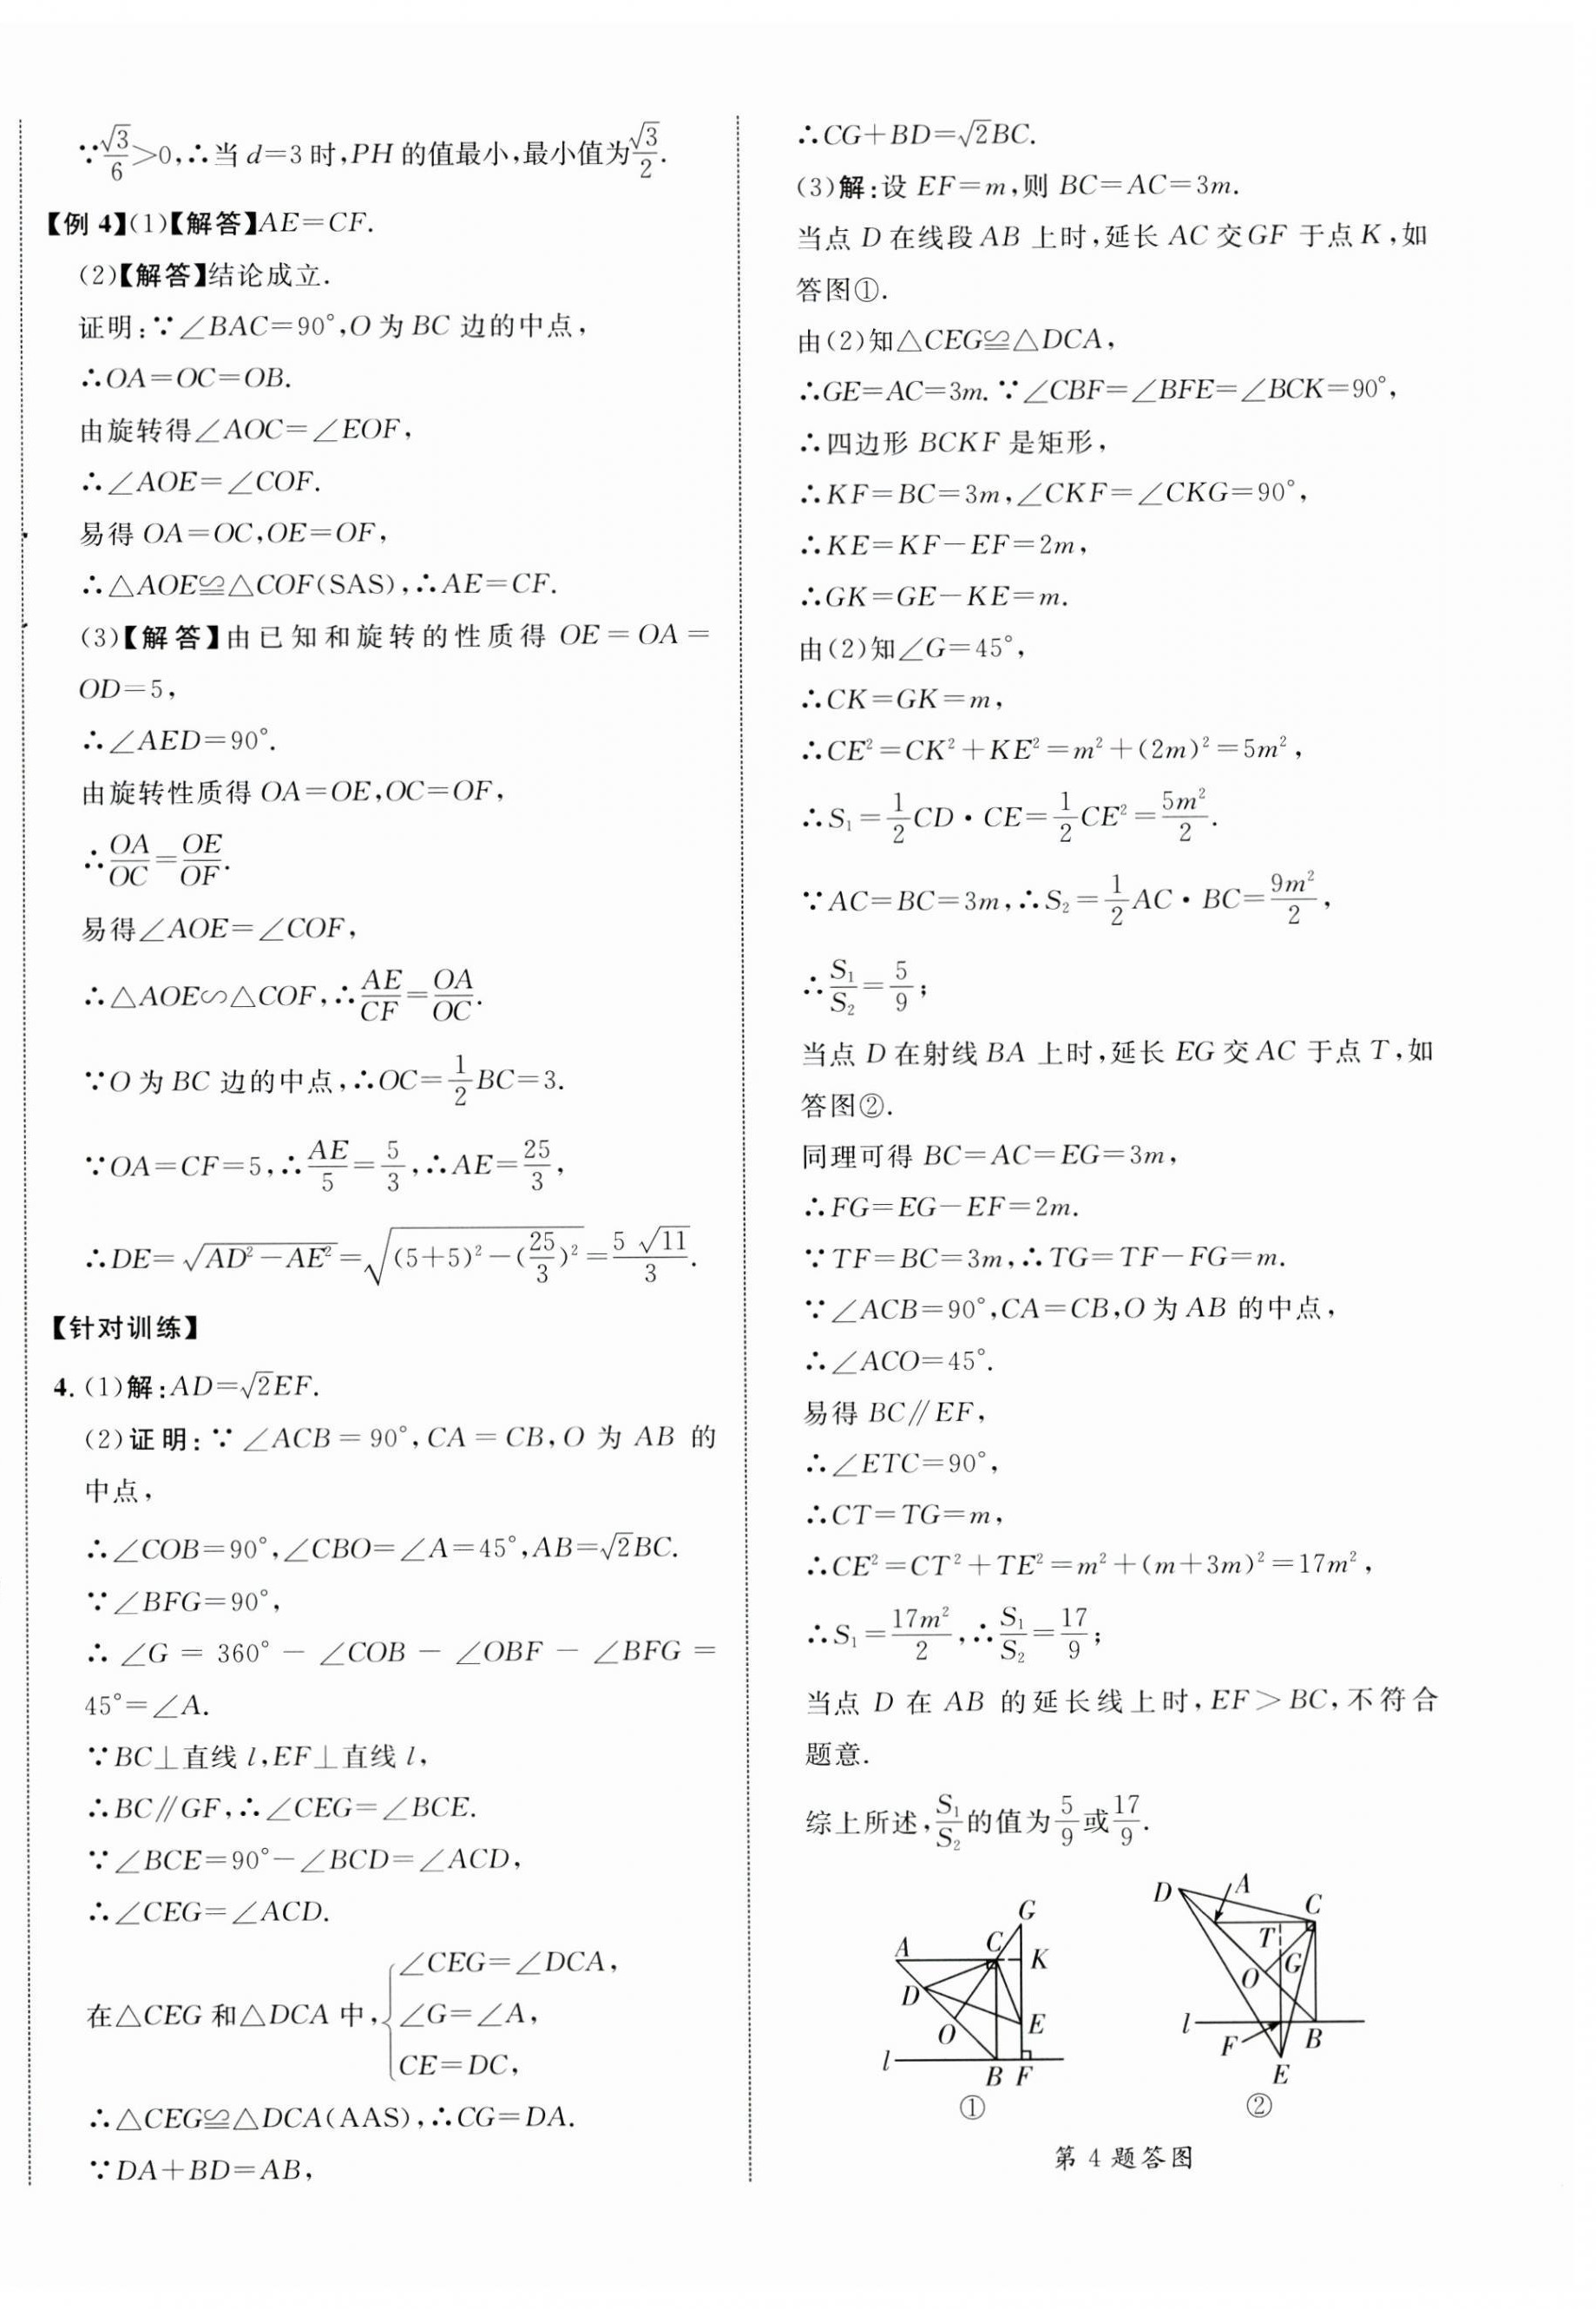 ∵√3/6>0,∴当 d=3 时,PH 的值最小,最小值为√3/2.
【例 4】(1)【解答】AE=CF.
(2)【解答】结论成立.
证明:∵∠BAC=90°,O 为 BC 边的中点,
∴OA=OC=OB.
由旋转得∠AOC=∠EOF,
∴∠AOE=∠COF.
易得 OA=OC,OE=OF,
∴△AOE≌△COF(SAS),∴AE=CF.
(3)【解答】由已知和旋转的性质得 OE=OA=
OD=5,
∴∠AED=90°.
由旋转性质得 OA=OE,OC=OF,
∴OA/OC=OE/OF.
易得∠AOE=∠COF,
∴△AOE∽△COF,∴AE/CF=OA/OC.
∵O 为 BC 边的中点,∴OC=1/2BC=3.
∵OA=CF=5,∴AE/5=5/3,∴AE=25/3,
∴DE=√(AD²-AE²)=√((5+5)²-(25/3)²)=5√11/3.
【针对训练】
4. (1)解:AD=√2EF.
(2)证明:∵∠ACB=90°,CA=CB,O 为 AB 的
中点,
∴∠COB=90°,∠CBO=∠A=45°,AB=√2BC.
∵∠BFG=90°,
∴∠G=360°-∠COB-∠OBF-∠BFG=
45°=∠A.
∵BC⊥直线 l,EF⊥直线 l,
∴BC∥GF,∴∠CEG=∠BCE.
∵∠BCE=90°-∠BCD=∠ACD,
∴∠CEG=∠ACD.
在△CEG 和△DCA 中,{∠CEG=∠DCA,
∠G=∠A,
CE=DC,
∴△CEG≌△DCA(AAS),∴CG=DA.
∵DA+BD=AB,
∴CG+BD=√2BC.
(3)解:设 EF=m,则 BC=AC=3m.
当点 D 在线段 AB 上时,延长 AC 交 GF 于点 K,如
答图①.
由(2)知△CEG≌△DCA,
∴GE=AC=3m.∵∠CBF=∠BFE=∠BCK=90°,
∴四边形 BCKF 是矩形,
∴KF=BC=3m,∠CKF=∠CKG=90°,
∴KE=KF-EF=2m,
∴GK=GE-KE=m.
由(2)知∠G=45°,
∴CK=GK=m,
∴CE²=CK²+KE²=m²+(2m)²=5m²,
∴S₁=1/2CD·CE=1/2CE²=5m²/2.
∵AC=BC=3m,∴S₂=1/2AC·BC=9m²/2,
∴S₁/S₂=5/9;
当点 D 在射线 BA 上时,延长 EG 交 AC 于点 T,如
答图②.
同理可得 BC=AC=EG=3m,
∴FG=EG-EF=2m.
∵TF=BC=3m,∴TG=TF-FG=m.
∵∠ACB=90°,CA=CB,O 为 AB 的中点,
∴∠ACO=45°.
易得 BC∥EF,
∴∠ETC=90°,
∴CT=TG=m,
∴CE²=CT²+TE²=m²+(m+3m)²=17m²,
∴S₁=17m²/2,∴S₁/S₂=17/9;
当点 D 在 AB 的延长线上时,EF>BC,不符合
题意.
综上所述,S₁/S₂的值为5/9或17/9.
G
A C K
D
O E
l B F
①
D A C
T
O G
l F B
E
②
第 4 题答图